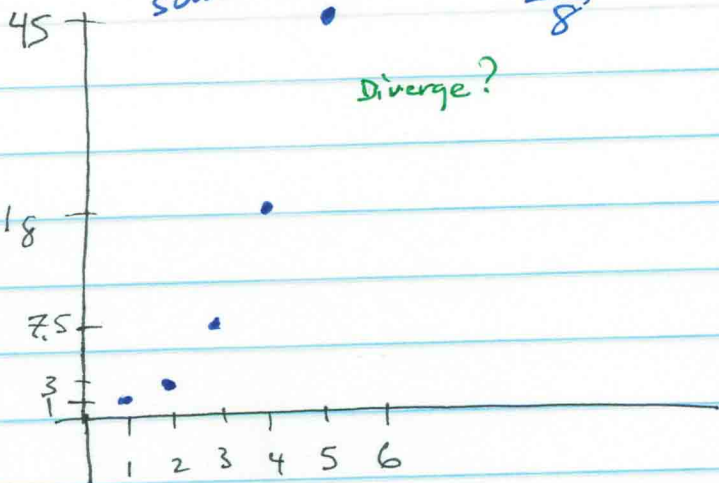 45
8
Diverge?
18
7.5
3
1
1 2 3 4 5 6